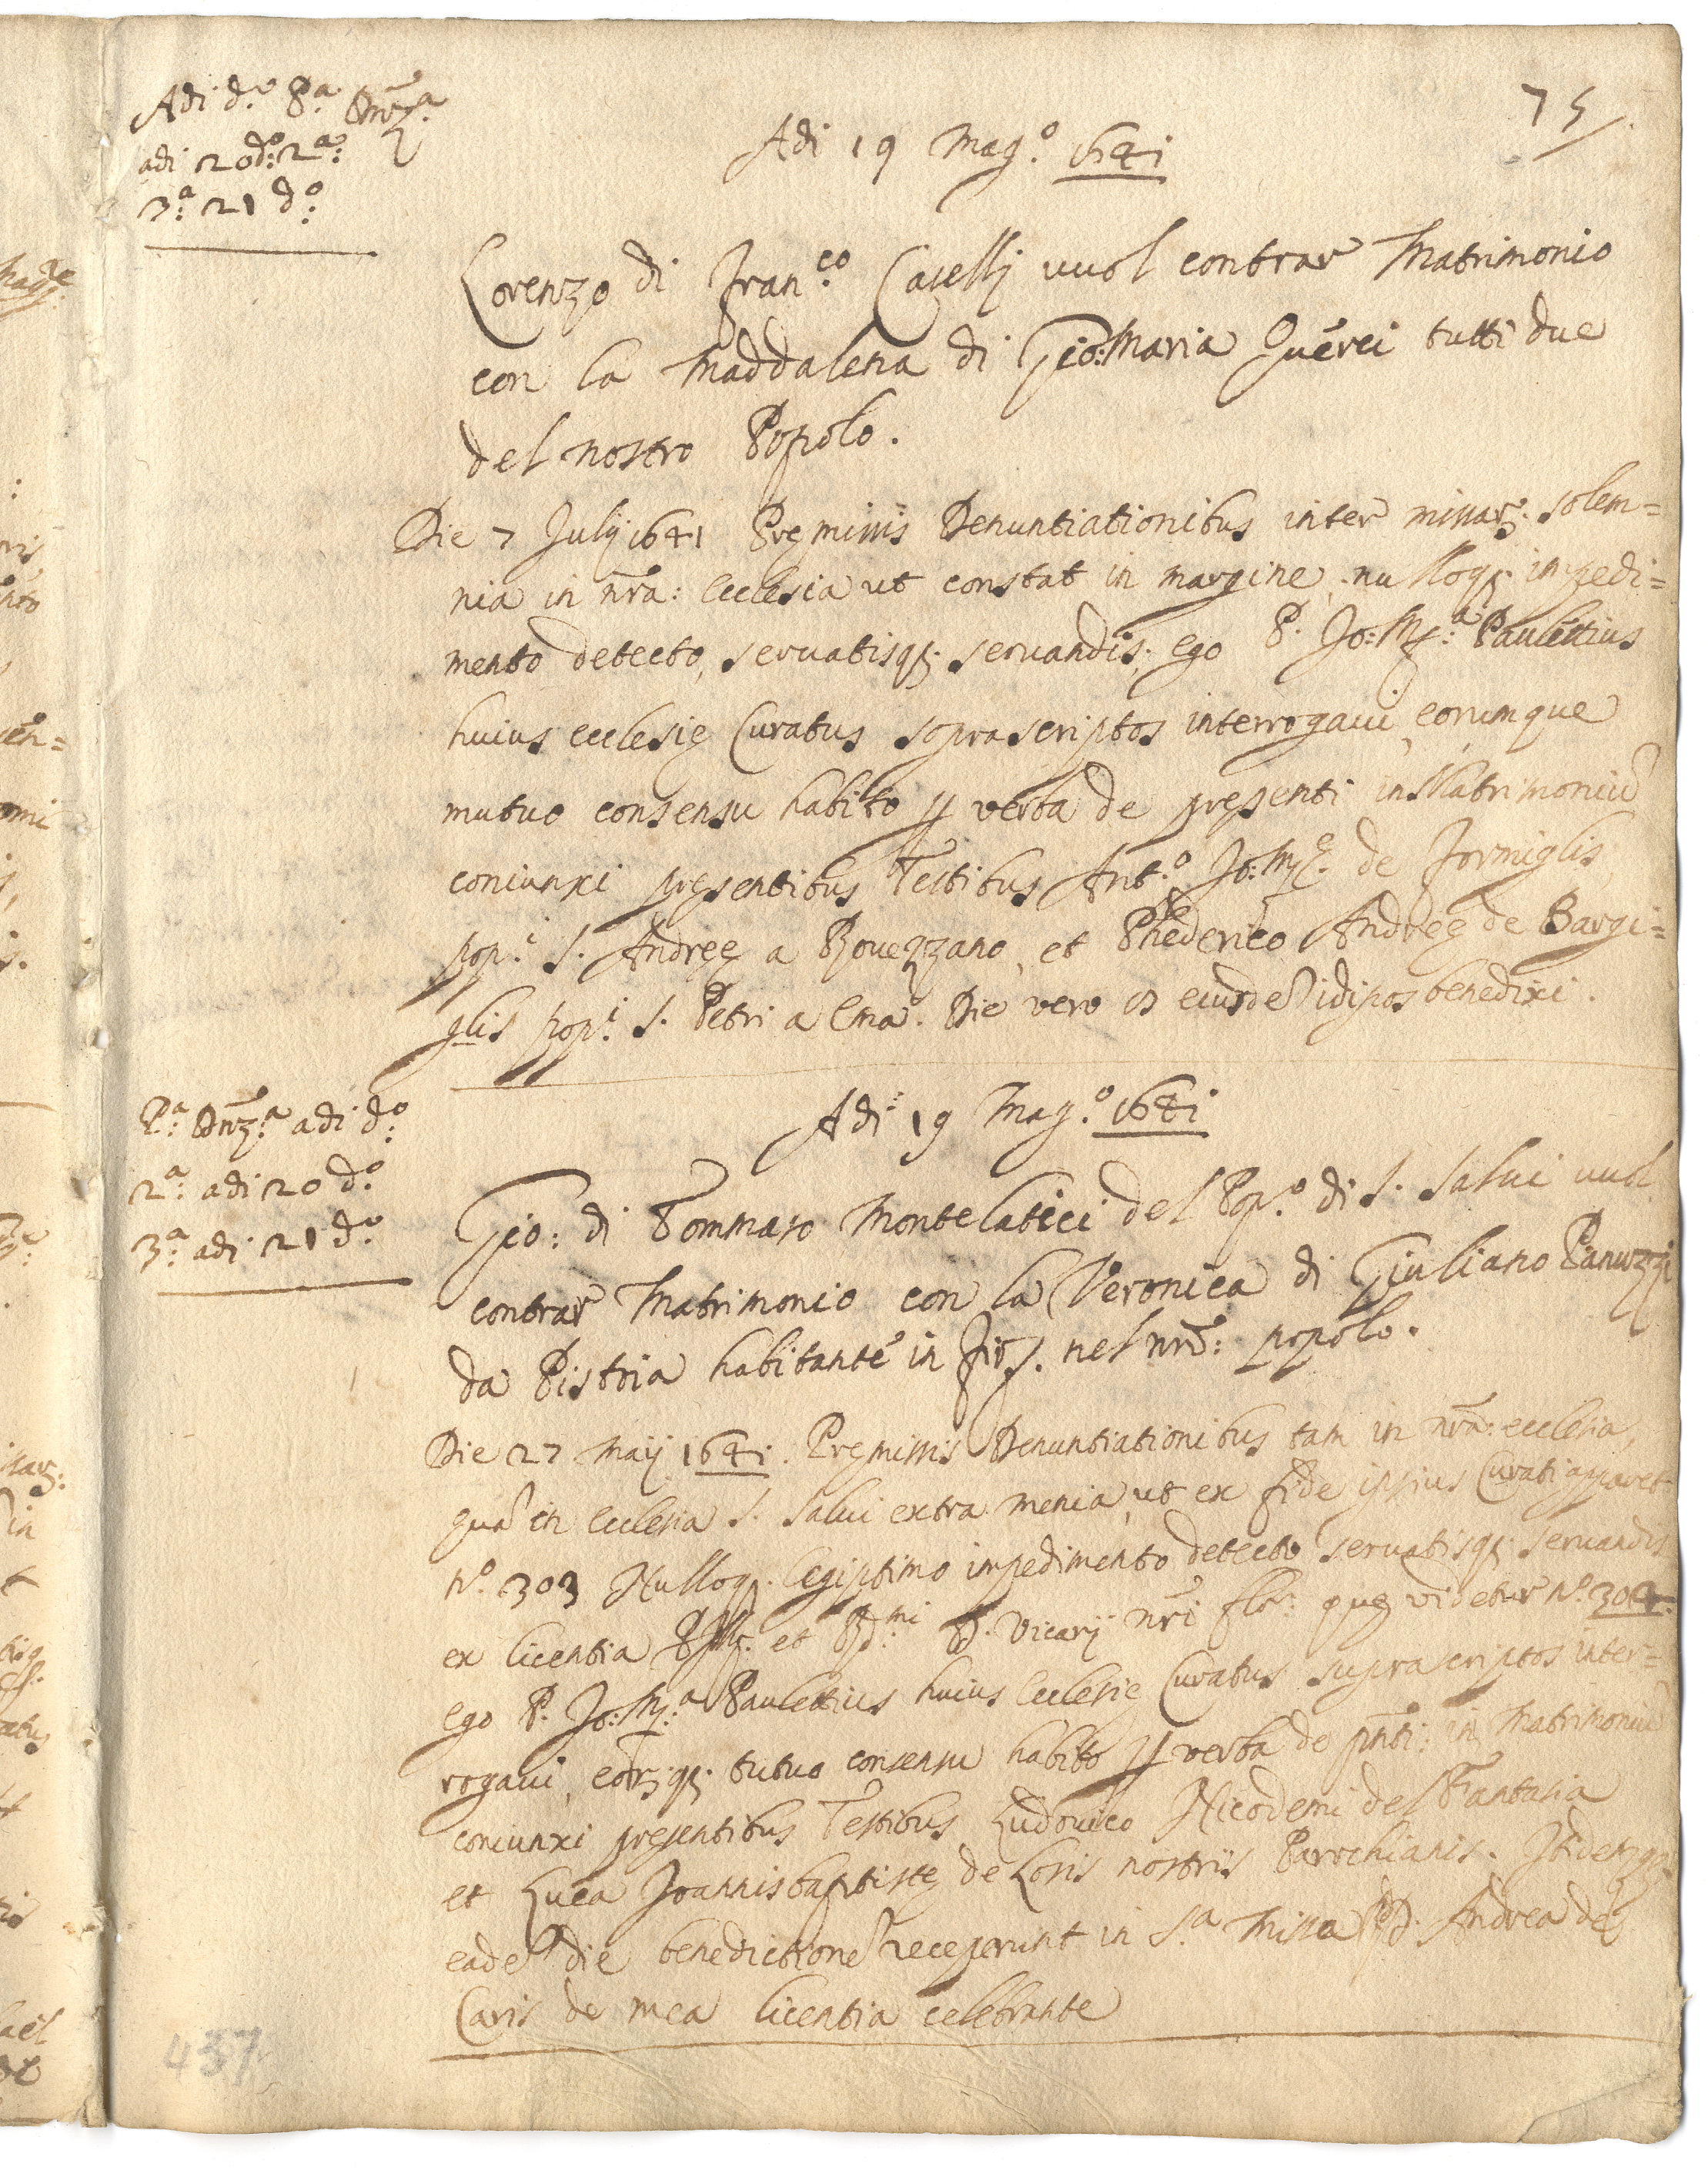 75
Adi d.º P.ª Dnz.ª
adi 20 d.º 2.ª
3.ª 21 d.º
Adi 19 Mag.º 1641
Lorenzo di Fran.co Caselli vuol contrar Matrimonio
con la Maddalena di Gio: Maria Querci tutti due
del nostro Popolo.
Die 7 Julij 1641 Premissis Denuntiationibus inter missar. solem=
nia in nra: Ecclesia ut constat in margine, nulloq; impedi=
mento detecto, servatisq; servandis, ego P. Jo: M.ª Paulettius
huius ecclesie Curatus soprascriptos interrogavi, eorumque
mutuo consensu habito p verba de presenti in Matrimoniu
coniunxi presentibus Testibus Ant.º Jo: M.e de Formiglis
pop.i S. Andree a Rovezzano, et Phederico Andree de Bargi=
glis pop.i S. Petri a Ema. Die vero eiusde benedixi.
P.ª Dnz.ª adi d.º
2.ª adi 20 d.º
3.ª adi 21 d.º
Adi 19 Mag.º 1641
Gio: di Tommaso Montelatici del Pop.º di S. Salvi vuol
contrar Matrimonio con la Veronica di Giuliano Panuzzi
da Pistoia habitante in Fir. nel nro: popolo.
Die 27 Maij 1641. Premissis Denuntiationibus tam in nra: ecclesia,
qua in Ecclesia S. Salvi extra menia, ut ex fide ipsius Curati apparet
Nº. 303 Nulloq; legiptimo impedimento detecto servatisq; servandis
ex licentia et R.mi D. Vicarij nri flor: que videtur Nº. 304.
ego P. Jo: M.ª Paulettius huius Ecclesie Curatus suprascriptos inter=
rogavi, eorq; tutuo consensu habito p verba de pnti: in Matrimoniu
coniunxi presentibus Testibus Ludovico Nicodemi del Fantasia
et Luca Joannisbaptiste de Loris nostris Parochianis. Itidemq;
eade die benedictione receperunt in S.ª Missa P. D. Andrea de
Caris de mea licentia celebrante
437